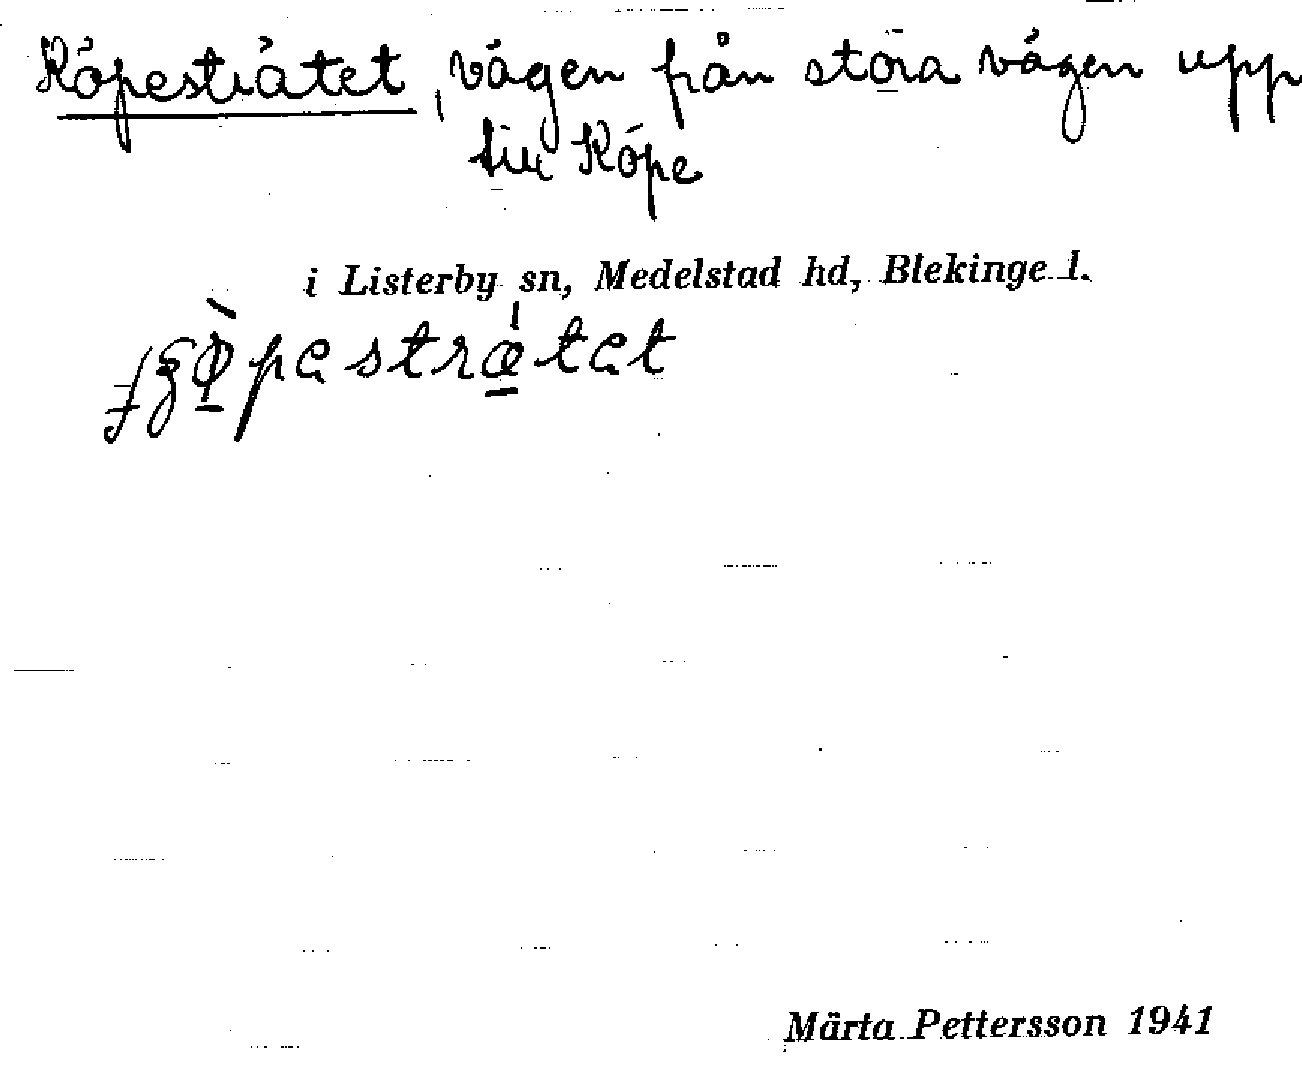 Köpesträtet, vägen från stora vägen upp
till Köpe
i Listerby sn, Medelstad hd, Blekinge l.
Märta Pettersson 1941